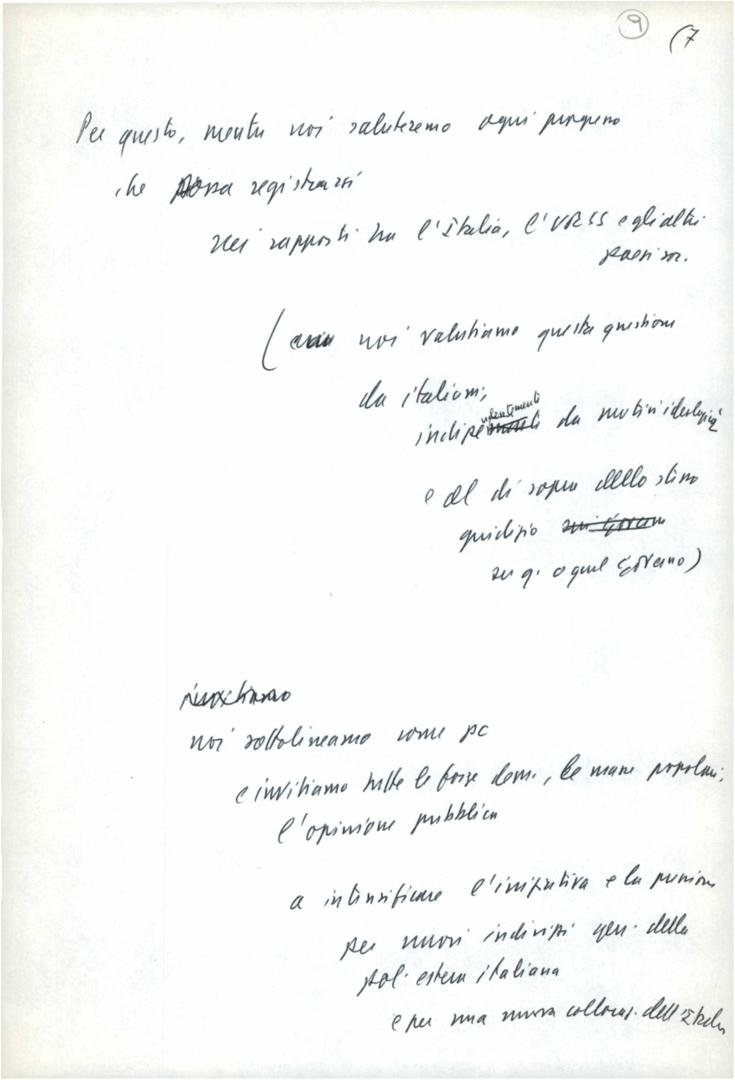 9 (7
Per questo, mentre noi saluteremo ogni progresso
che possa registrarsi
nei rapporti tra l'Italia, l'URSS e gli altri
paesi soc.
( noi valutiamo questa questione
da italiani,
indipendentemente da motivi ideologici
e al di sopra dello stesso
giudizio
su q. o quel Governo)
noi sottolineamo come pc
e invitiamo tutte le forze dem., le masse popolari,
l'opinione pubblica
a intensificare l'iniziativa e la pressione
per nuovi indirizzi gen. della
pol. estera italiana
e per una nuova collocaz. dell'Italia